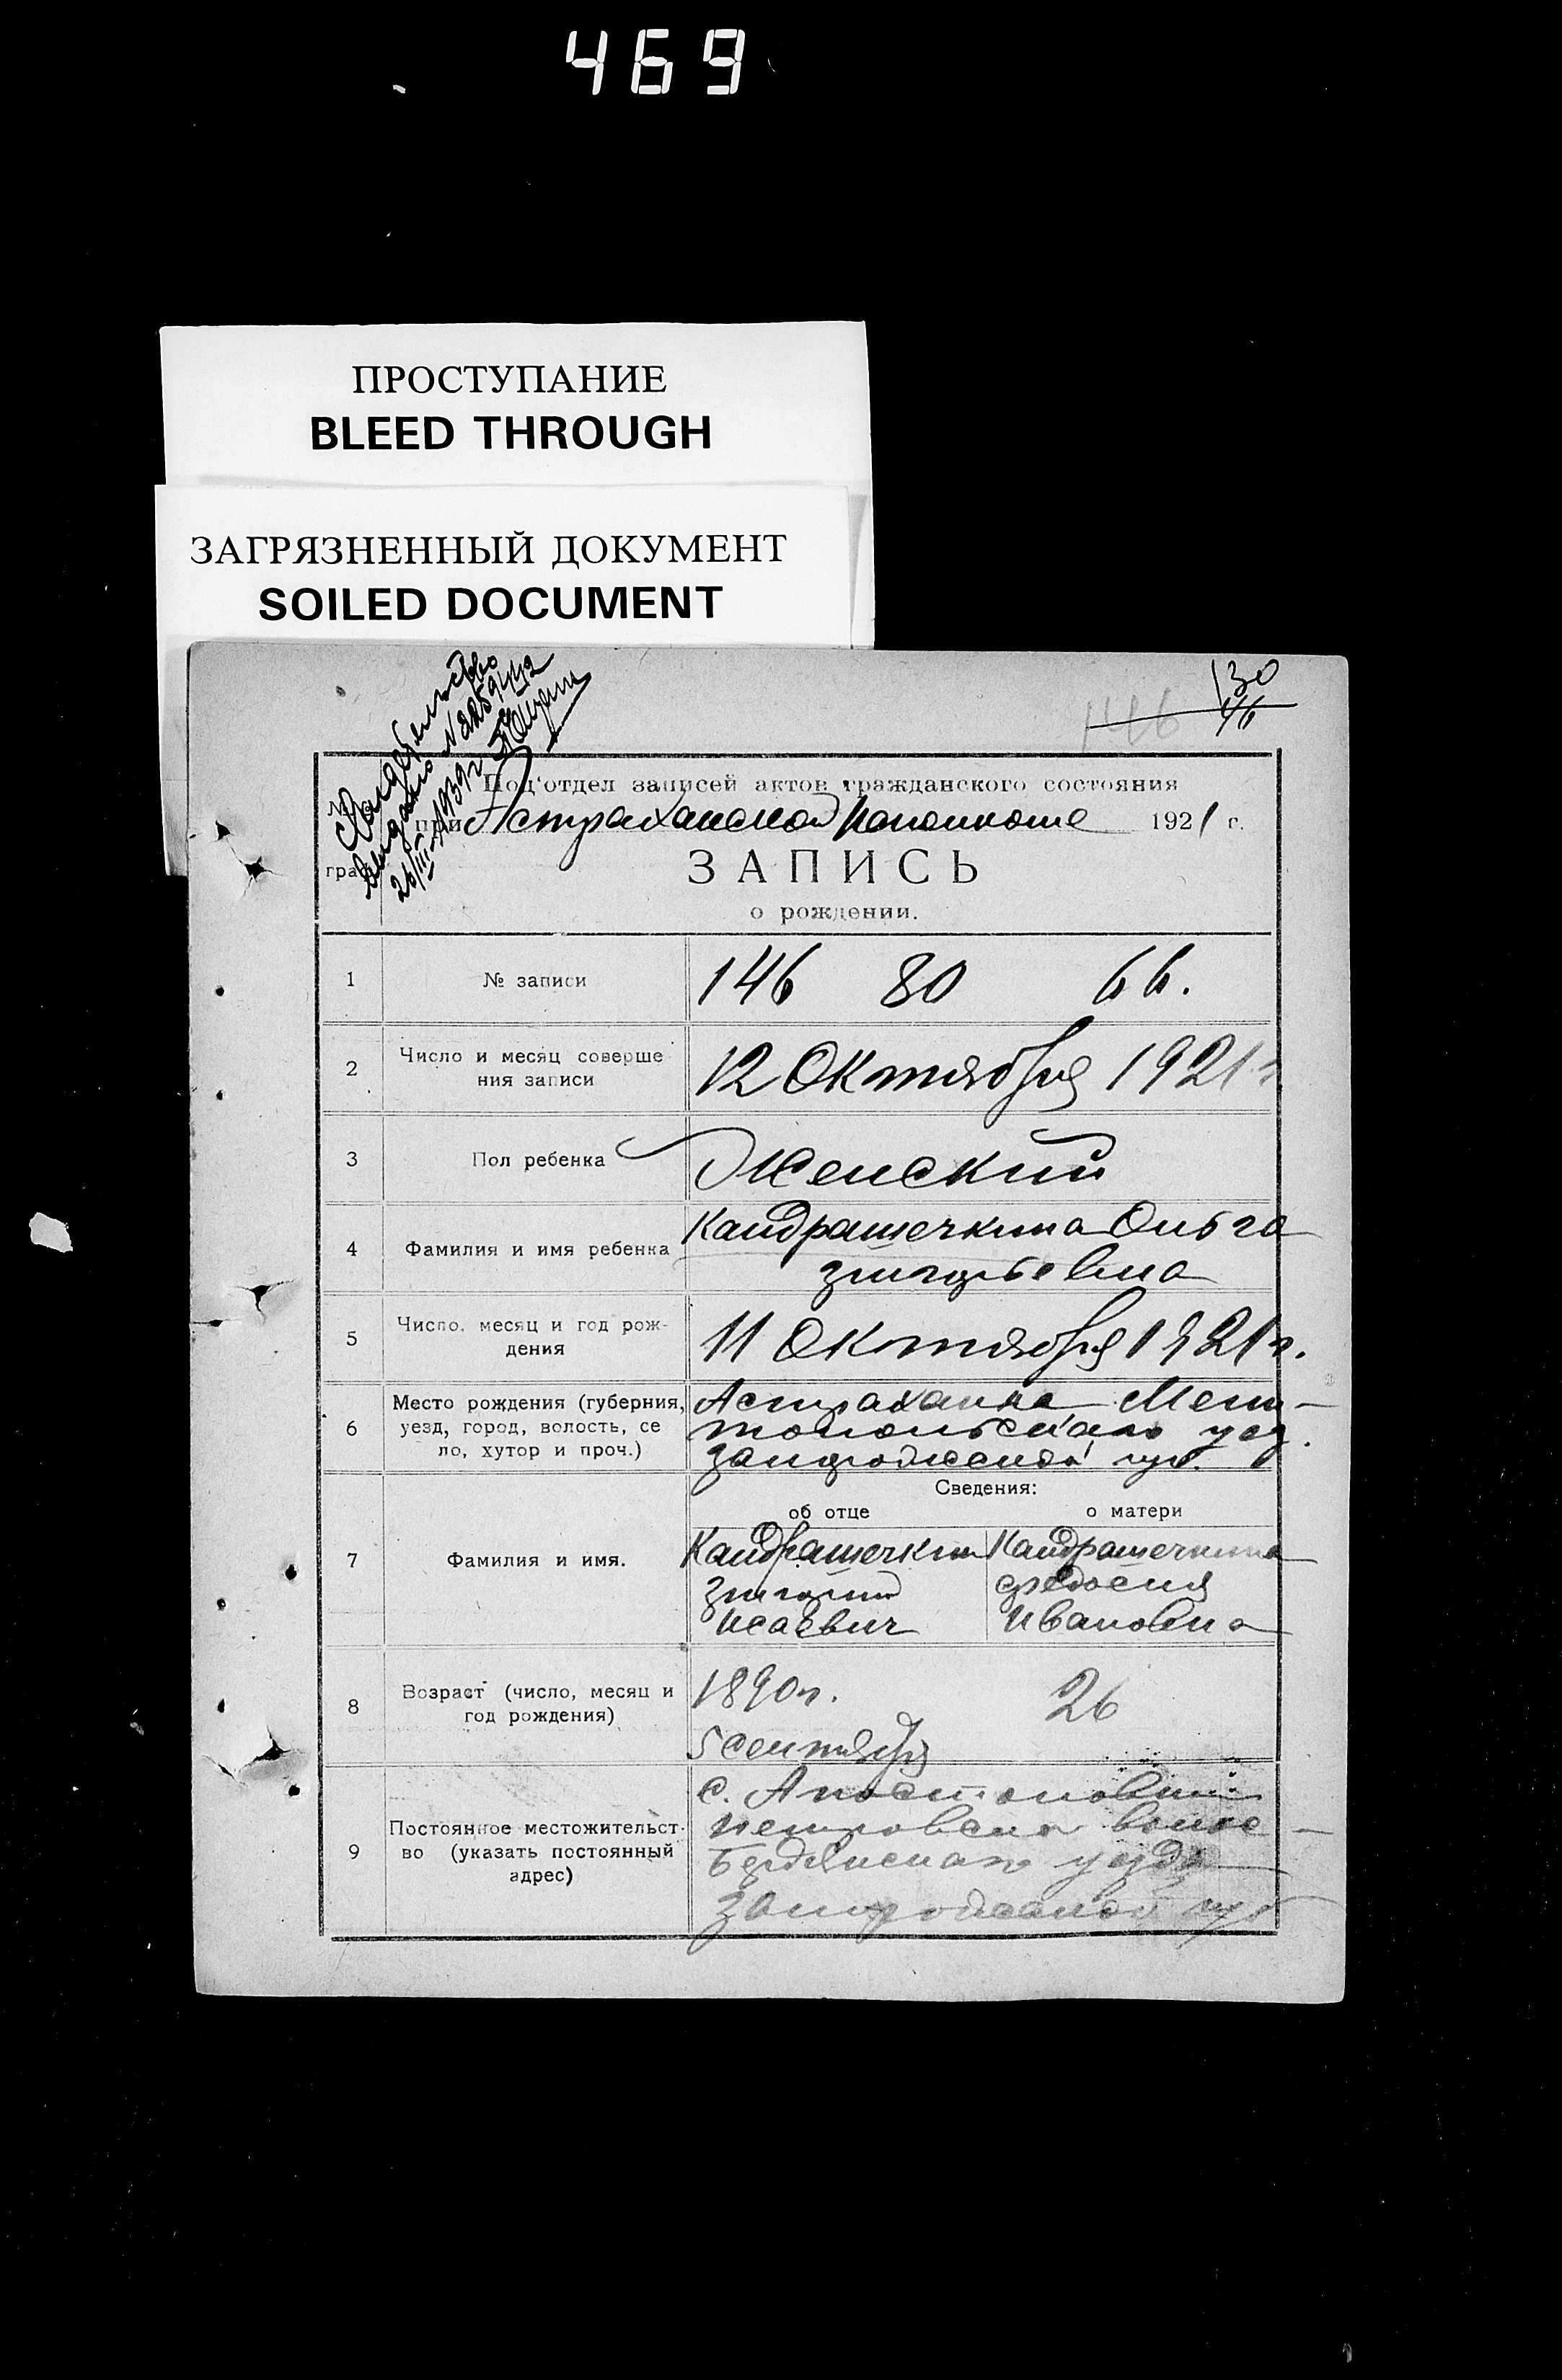 469
ПРОСТУПАНИЕ
BLEED THROUGH
ЗАГРЯЗНЕННЫЙ ДОКУМЕНТ
SOILED DOCUMENT
Свидетельство
выдано №
26/III-1939г
130
146
Под'отдел записей актов гражданского состояния
при Астраханской 1921 г.
гра
ЗАПИСЬ
о рождении.
1 № записи 146 80 66.
2 Число и месяц соверше
ния записи
12 Октября 1921г
3 Пол ребенка Женский
4 Фамилия и имя ребенка
Кандрашечкина Ольга
Григорьевна
5 Число, месяц и год рож-
дения
11 Октября 1921г.
6 Место рождения (губерния,
уезд, город, волость, се
ло, хутор и проч.)
Астраханка Мели-
топольскаго уез.
Запорожской губ.
Сведения:
об отце о матери
7 Фамилия и имя.
Кандрашечкин
Григорий
Исаевич
Кандрашечкина
Федосия
Ивановна
8 Возраст (число, месяц и
год рождения)
1890г.
5 сентября
26
9 Постоянное местожительст-
во (указать постоянный
адрес)
с. Апостоловки
Бердянскаго уезда
Запорожской губ